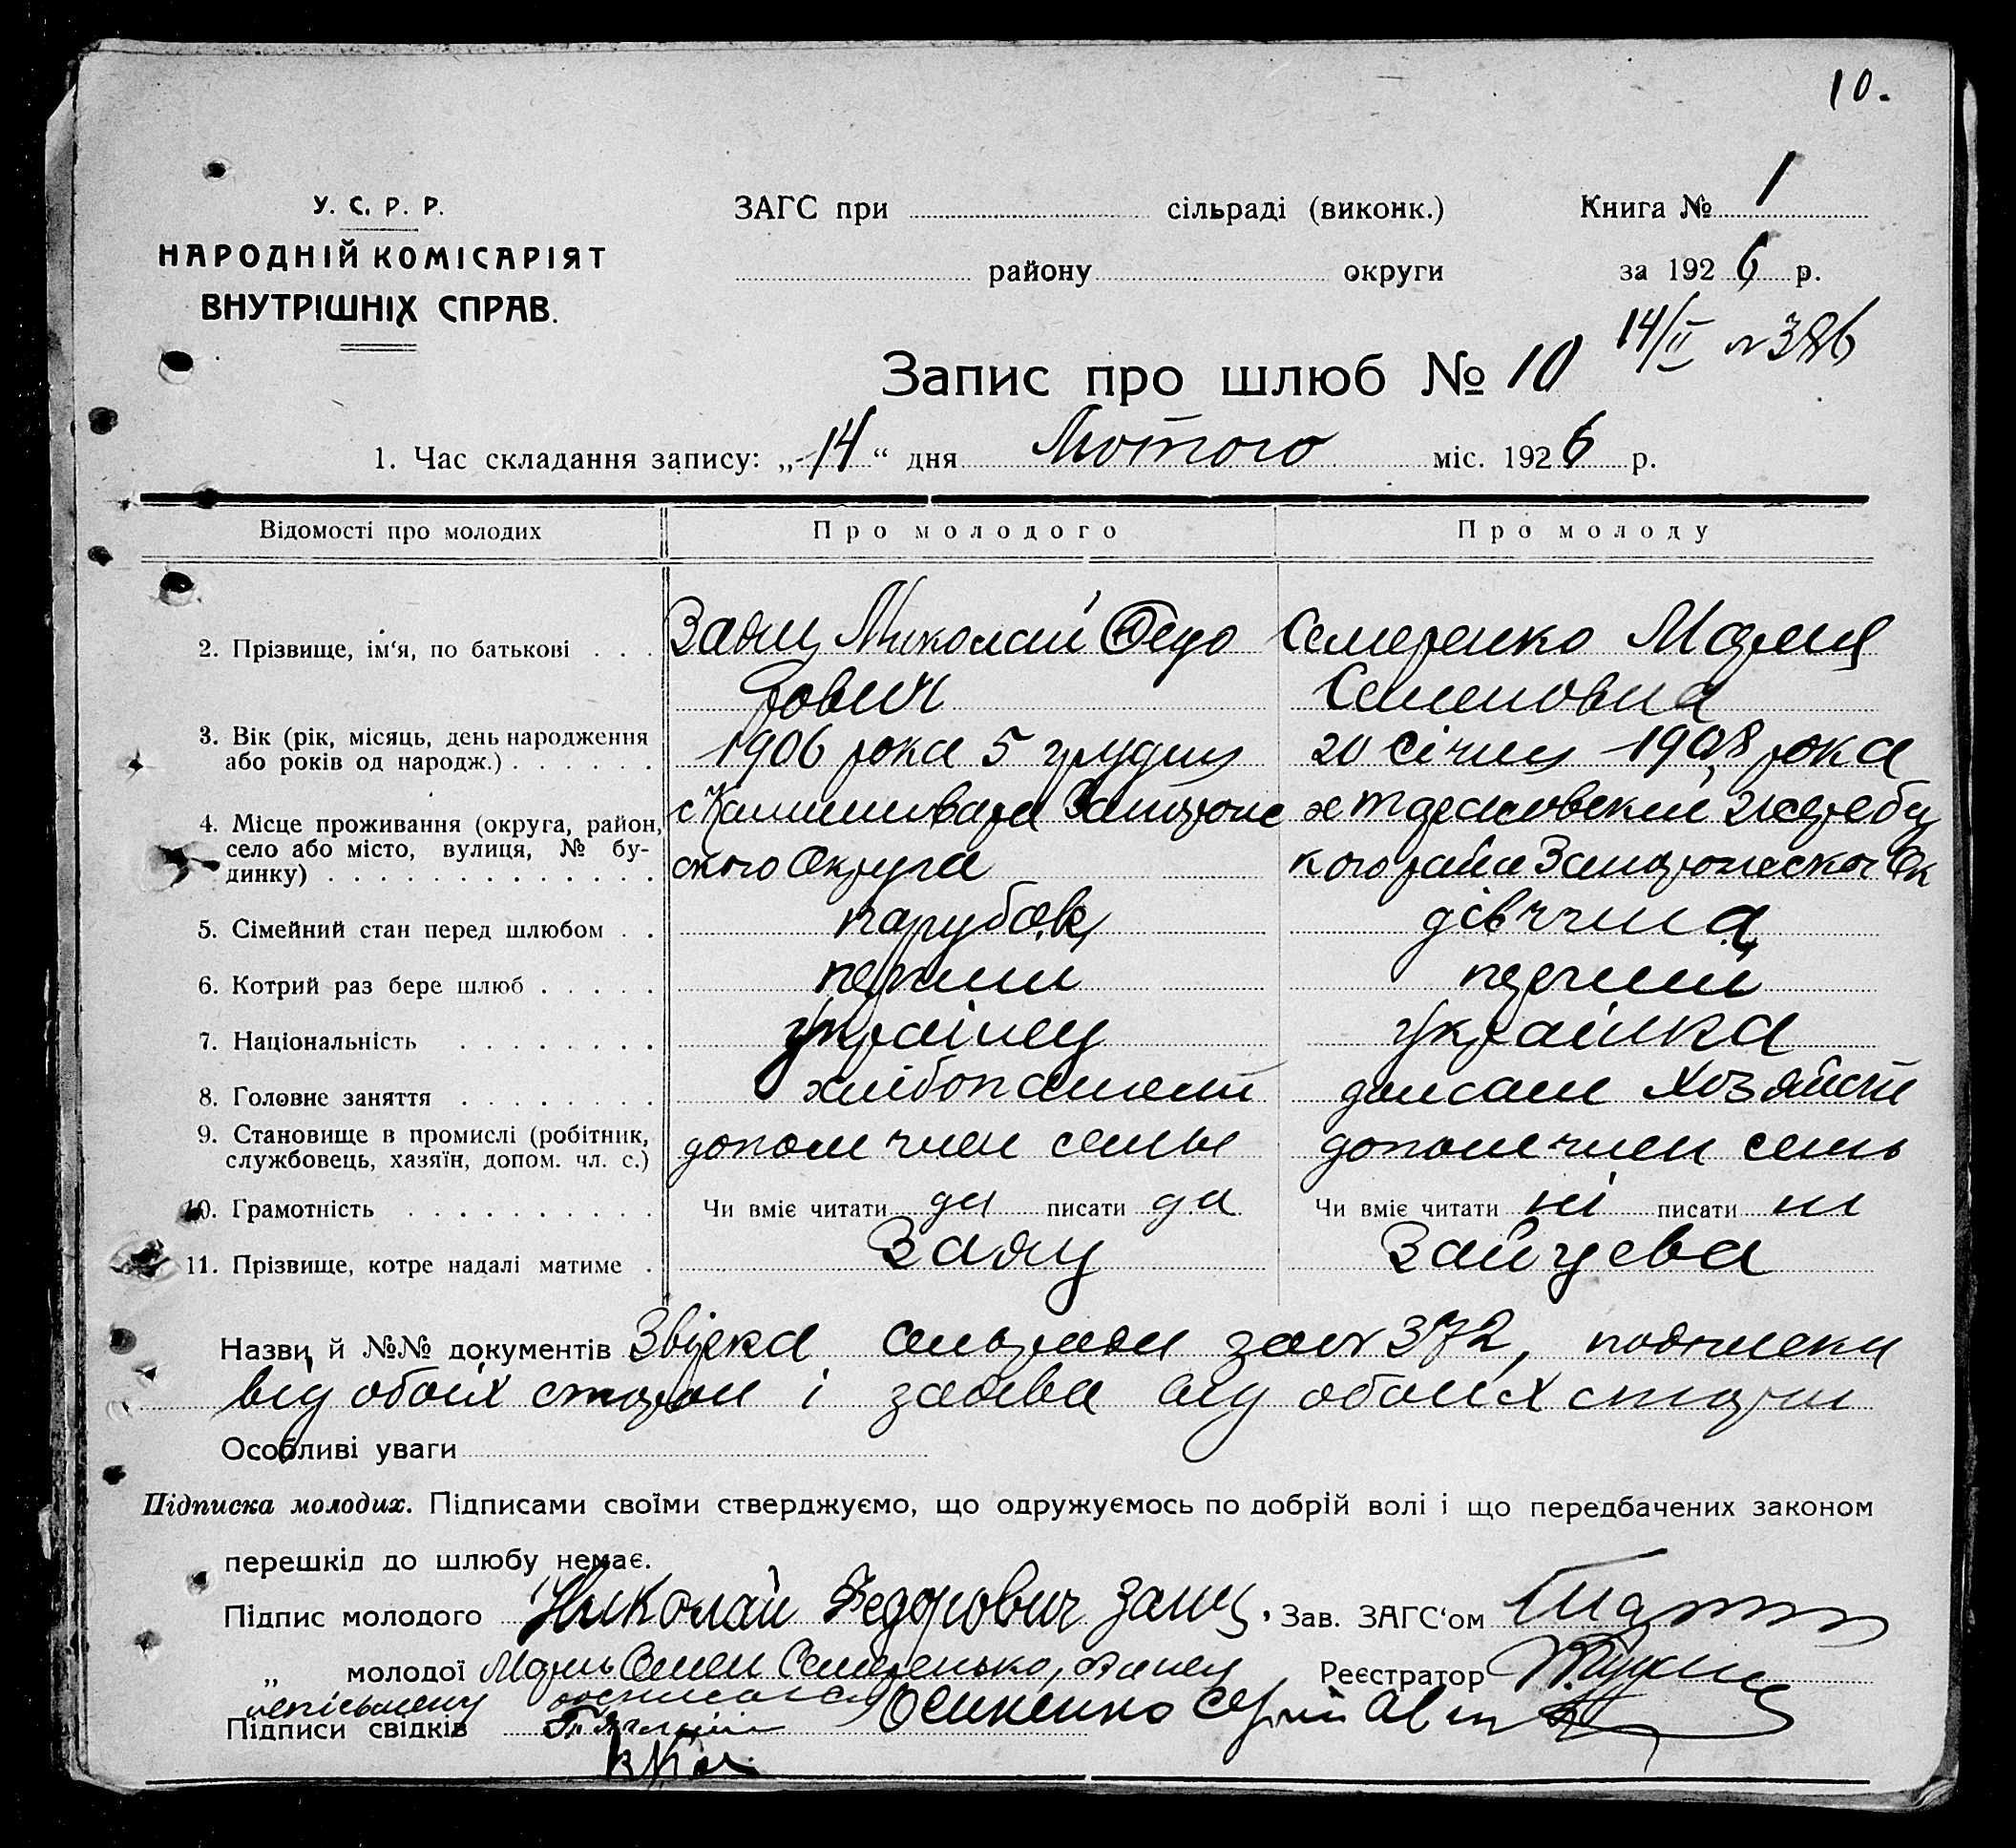 10.
У. С. Р. Р.
НАРОДНІЙ КОМІСАРІЯТ
ВНУТРІШНІХ СПРАВ.
ЗАГС при сільраді (виконк.)
району округи
Книга № 1
за 1926 р.
14/II № 386
Запис про шлюб № 10
1. Час складання запису: „14“ дня Лютого міс. 1926 р.
Відомості про молодих
Про молодого
Про молоду
2. Прізвище, ім'я, по батькові
Заяц Миколай Федо
рович
Семеренко Мария
Семеновна
3. Вік (рік, місяць, день народження
або років од народж.)
1906 рока 5 грудня
20 Січня 1908 рока
4. Місце проживання (округа, район,
село або місто, вулиця, № бу-
динку)
с Камишеваха Запорож
ского Округа
х Тарасовский Жеребц
кого райа Запорожского Ок
5. Сімейний стан перед шлюбом
парубок
дівчина
6. Котрий раз бере шлюб
перший
перший
7. Національність
українец
українка
8. Головне заняття
хлібопашени
домаши хозяйств
9. Становище в промислі (робітник,
службовець, хазяїн, допом. чл. с.)
допом член семьи
допом член семь
10. Грамотність
Чи вміє читати да писати да
Чи вміє читати ні писати ні
11. Прізвище, котре надалі матиме
Заяц
Зайцева
Назви й №№ документів Звірка сельради за № 372, подписки
від обоїх сторон і заява від обоїх сторон
Особливі уваги
Підписка молодих. Підписами своїми стверджуємо, що одружуємось по добрій волі і що передбачених законом
перешкід до шлюбу немає.
Підпис молодого Николай Федорович Заиц, Зав. ЗАГС'ом
„ молодої Марь Семен Семеренько, Реєстратор
Підписи свідків